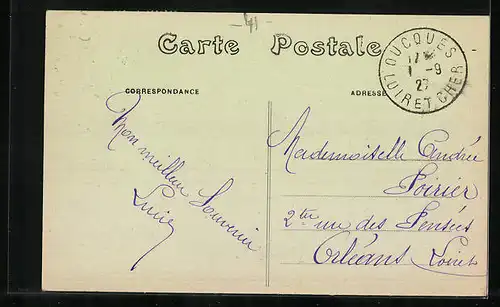 41
Carte Postale
CORRESPONDANCE
ADRESSE
OUCQUES
17
1 -9
27
LOIR ET CHER
Mon meilleur Souvenir
Lucie
Mademoiselle Andrée
Poirier
2 ter rue des Pensées
Orléans Loiret